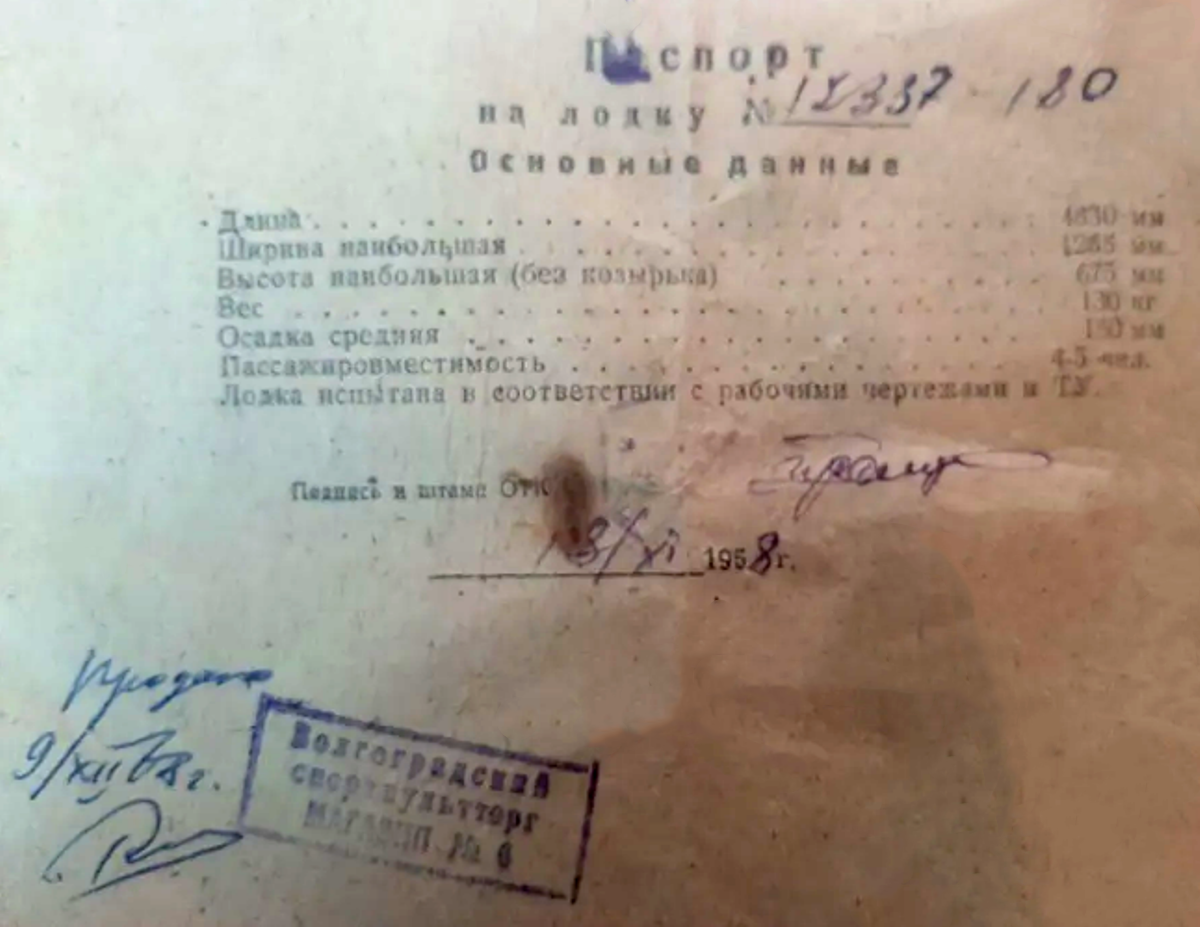 Паспорт
на лодку № 12337-180
Основные данные
Длина . . . . . . . . . . 4830 мм
Ширина наибольшая . . . . . . . . . . 1265 мм
Высота наибольшая (без козырька) . . . . . . . . 675 мм
Вес . . . . . . . . . . 130 кг
Осадка средняя . . . . . . . . . . 150 мм
Пассажировместимость . . . . . . . . . . 4-5 чел.
Лодка испытана в соответствии с рабочими чертежами и ТУ.
Подпись и штамп ОТК
18/XI 1958г.
Продана
9/XII 68г.
Волгоградский
спорткультторг
МАГАЗИН № 6